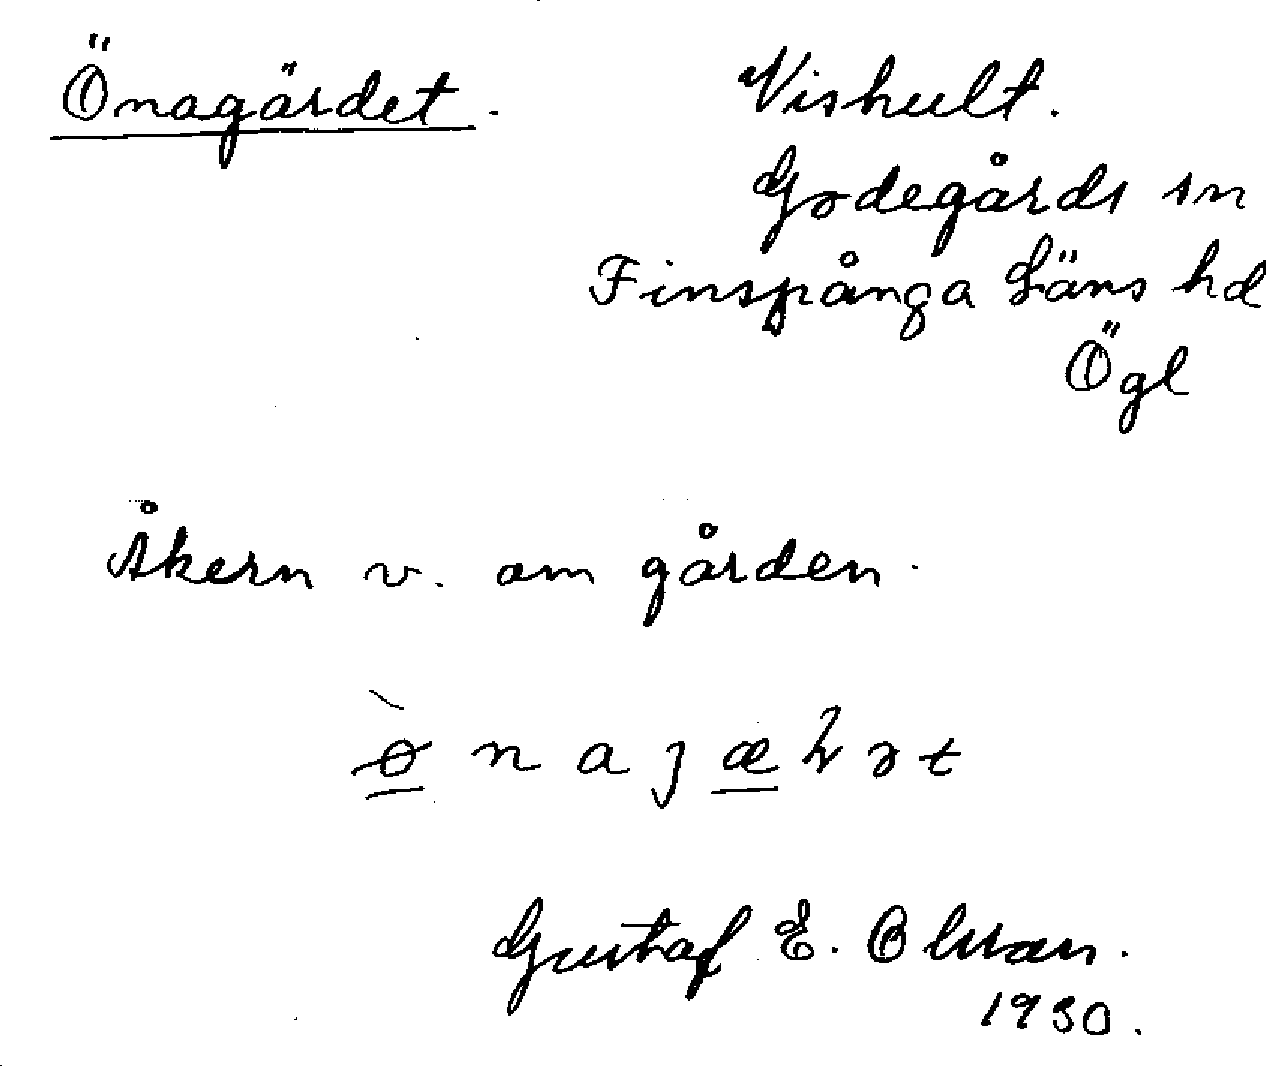 Önagärdet. Vishult.
Godegårds sn
Finspånga Läns hd
Ögl
Åkern v. om gården.
Gustaf E. Olsson.
1930.